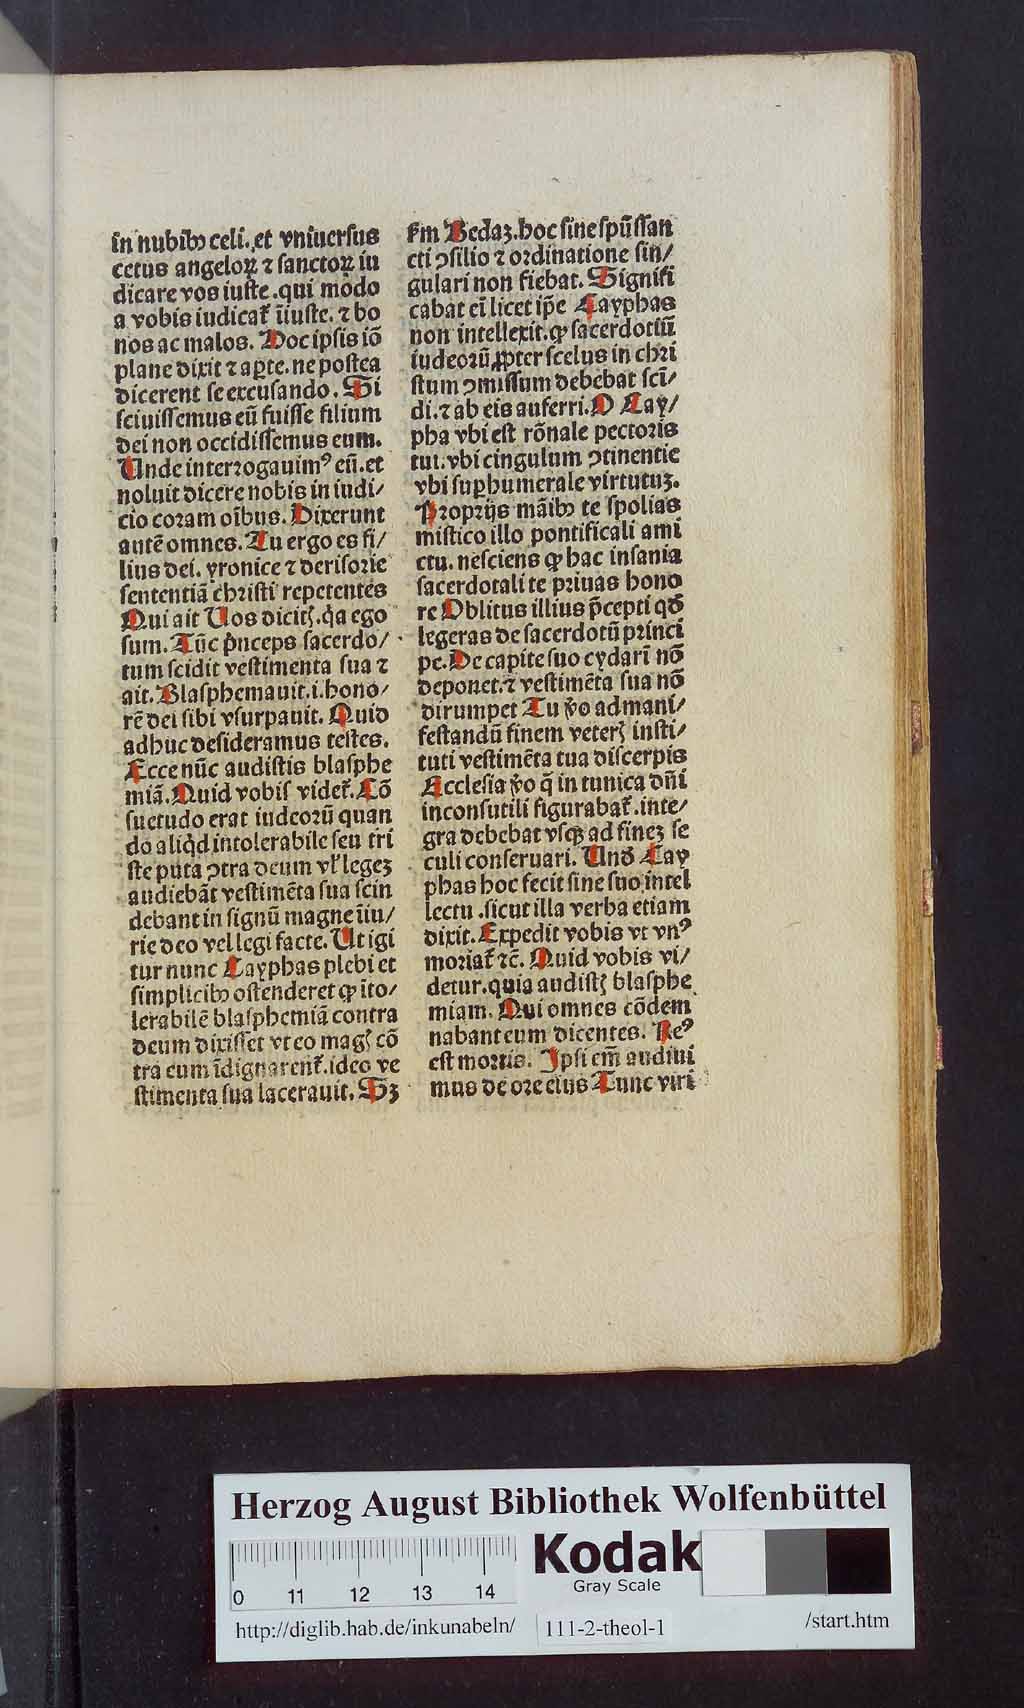 in nubibꝰ celi. et vniuersus
cetus angeloꝝ ⁊ sanctoꝝ iu
dicare vos iuste. qui modo
a vobis iudicat᷑ iĩuste. ⁊ bo
nos ac malos. Hoc ipsis iõ
plane dixit ⁊ aꝑte. ne postea
dicerent se excusando. Si
sciuissemus eũ fuisse filium
dei non occidissemus eum.
Unde interrogauimꝰ eũ. et
noluit dicere nobis in iudi/
cio coram oĩbus. Dixerunt
autẽ omnes. Tu ergo es fi/
lius dei. yronice ⁊ derisorie
sententiã christi repetentes
Qui ait Uos dicitꝭ. q̃a ego
sum. Tũc p̃nceps sacerdo/
tum scidit vestimenta sua ⁊
ait. Blasphemauit. i. hono/
rẽ dei sibi vsurpauit. Quid
adhuc desideramus testes.
Ecce nũc audistis blasphe
miã. Quid vobis videt᷑. Cõ
suetudo erat iudeorũ quan
do aliq̃d intolerabile seu tri
ste puta ↄtra deum vl̕ legeꝫ
audiebãt vestimẽta sua scin
debant in signũ magne iĩu/
rie deo vel legi facte. Ut igi
tur nunc Cayphas plebi et
simplicibꝰ ostenderet ꝙ ĩto/
lerabilẽ blasphemiã contra
deum dixisset vt eo magꝭ cõ
tra eum ĩdignarent᷑. ideo ve
stimenta sua lacerauit. Sꝫ
km̃ Bedaꝫ. hoc sine spũssan
cti ↄsilio ⁊ ordinatione sin/
gulari non fiebat. Signifi
cabat eĩ licet ip̃e Cayphas
non intellexit. ꝙ sacerdotiũ
iudeorũ ꝓpter scelus in chri
stum ↄmissum debebat scĩ/
di. ⁊ ab eis auferri. O Cay/
pha vbi est rõnale pectoris
tui. vbi cingulum ↄtinentie
vbi suꝑhumerale virtutuꝫ.
Proprijs mãibꝰ te spolias
mistico illo pontificali ami
ctu. nesciens ꝙ hac insania
sacerdotali te priuas hono
re Oblitus illius p̃cepti qđ
legeras de sacerdotũ princi
pe. De capite suo cydarĩ nõ
deponet. ⁊ vestimẽta sua nõ
dirumpet Tu ṽo ad mani/
festandũ finem veterꝭ insti/
tuti vestimẽta tua discerpis
Ecclesia ṽo q̃ in tunica dñi
inconsutili figurabat᷑. inte/
gra debebat vsqꝫ ad fineꝫ se
culi conseruari. Unđ Cay
phas hoc fecit sine suo intel
lectu. sicut illa verba etiam
dixit. Expedit vobis vt vnꝰ
moriat᷑ ⁊c̃. Quid vobis vi/
detur. quia audistꝭ blasphe
miam. Qui omnes cõdem
nabant eum dicentes. Reꝰ
est mortis. Ipsi em̃ audiui
mus de ore eius Tunc viri
Herzog August Bibliothek Wolfenbüttel
Kodak
Gray Scale
0 11 12 13 14
http://diglib.hab.de/inkunabeln/ 111-2-theol-1 /start.htm